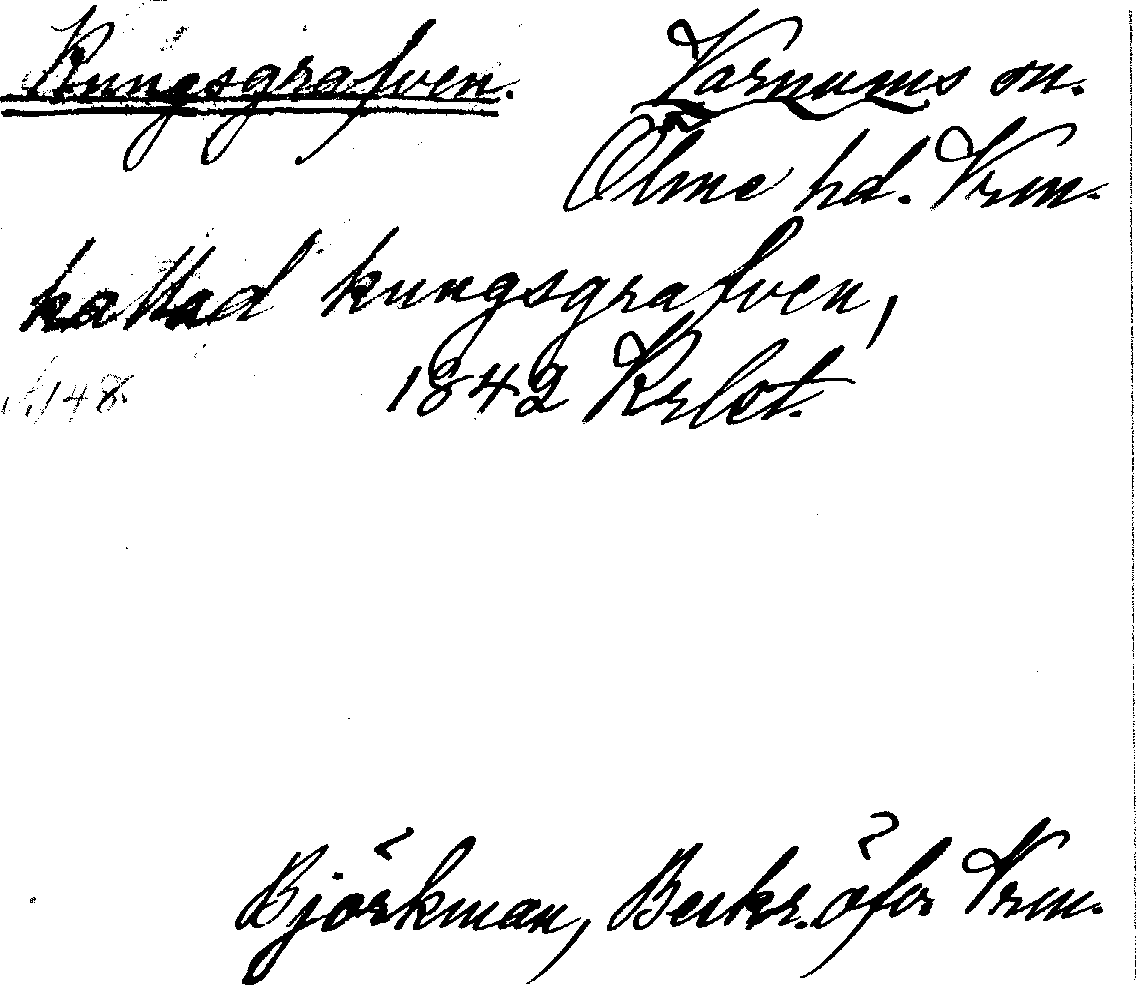 Kungsgrafven. Varnums sn.
Ölme hd. Vrm.
kallad kungsgrafven,
148. 1842 Krlct.
Björkman, Beskr. öfer Vrm.